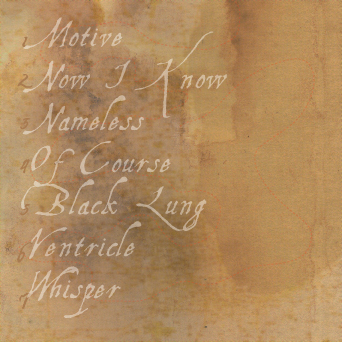 1 Motive
2 Now I Know
3 Nameless
4 Of Course
5 Black Lung
6 Ventricle
7 Whisper